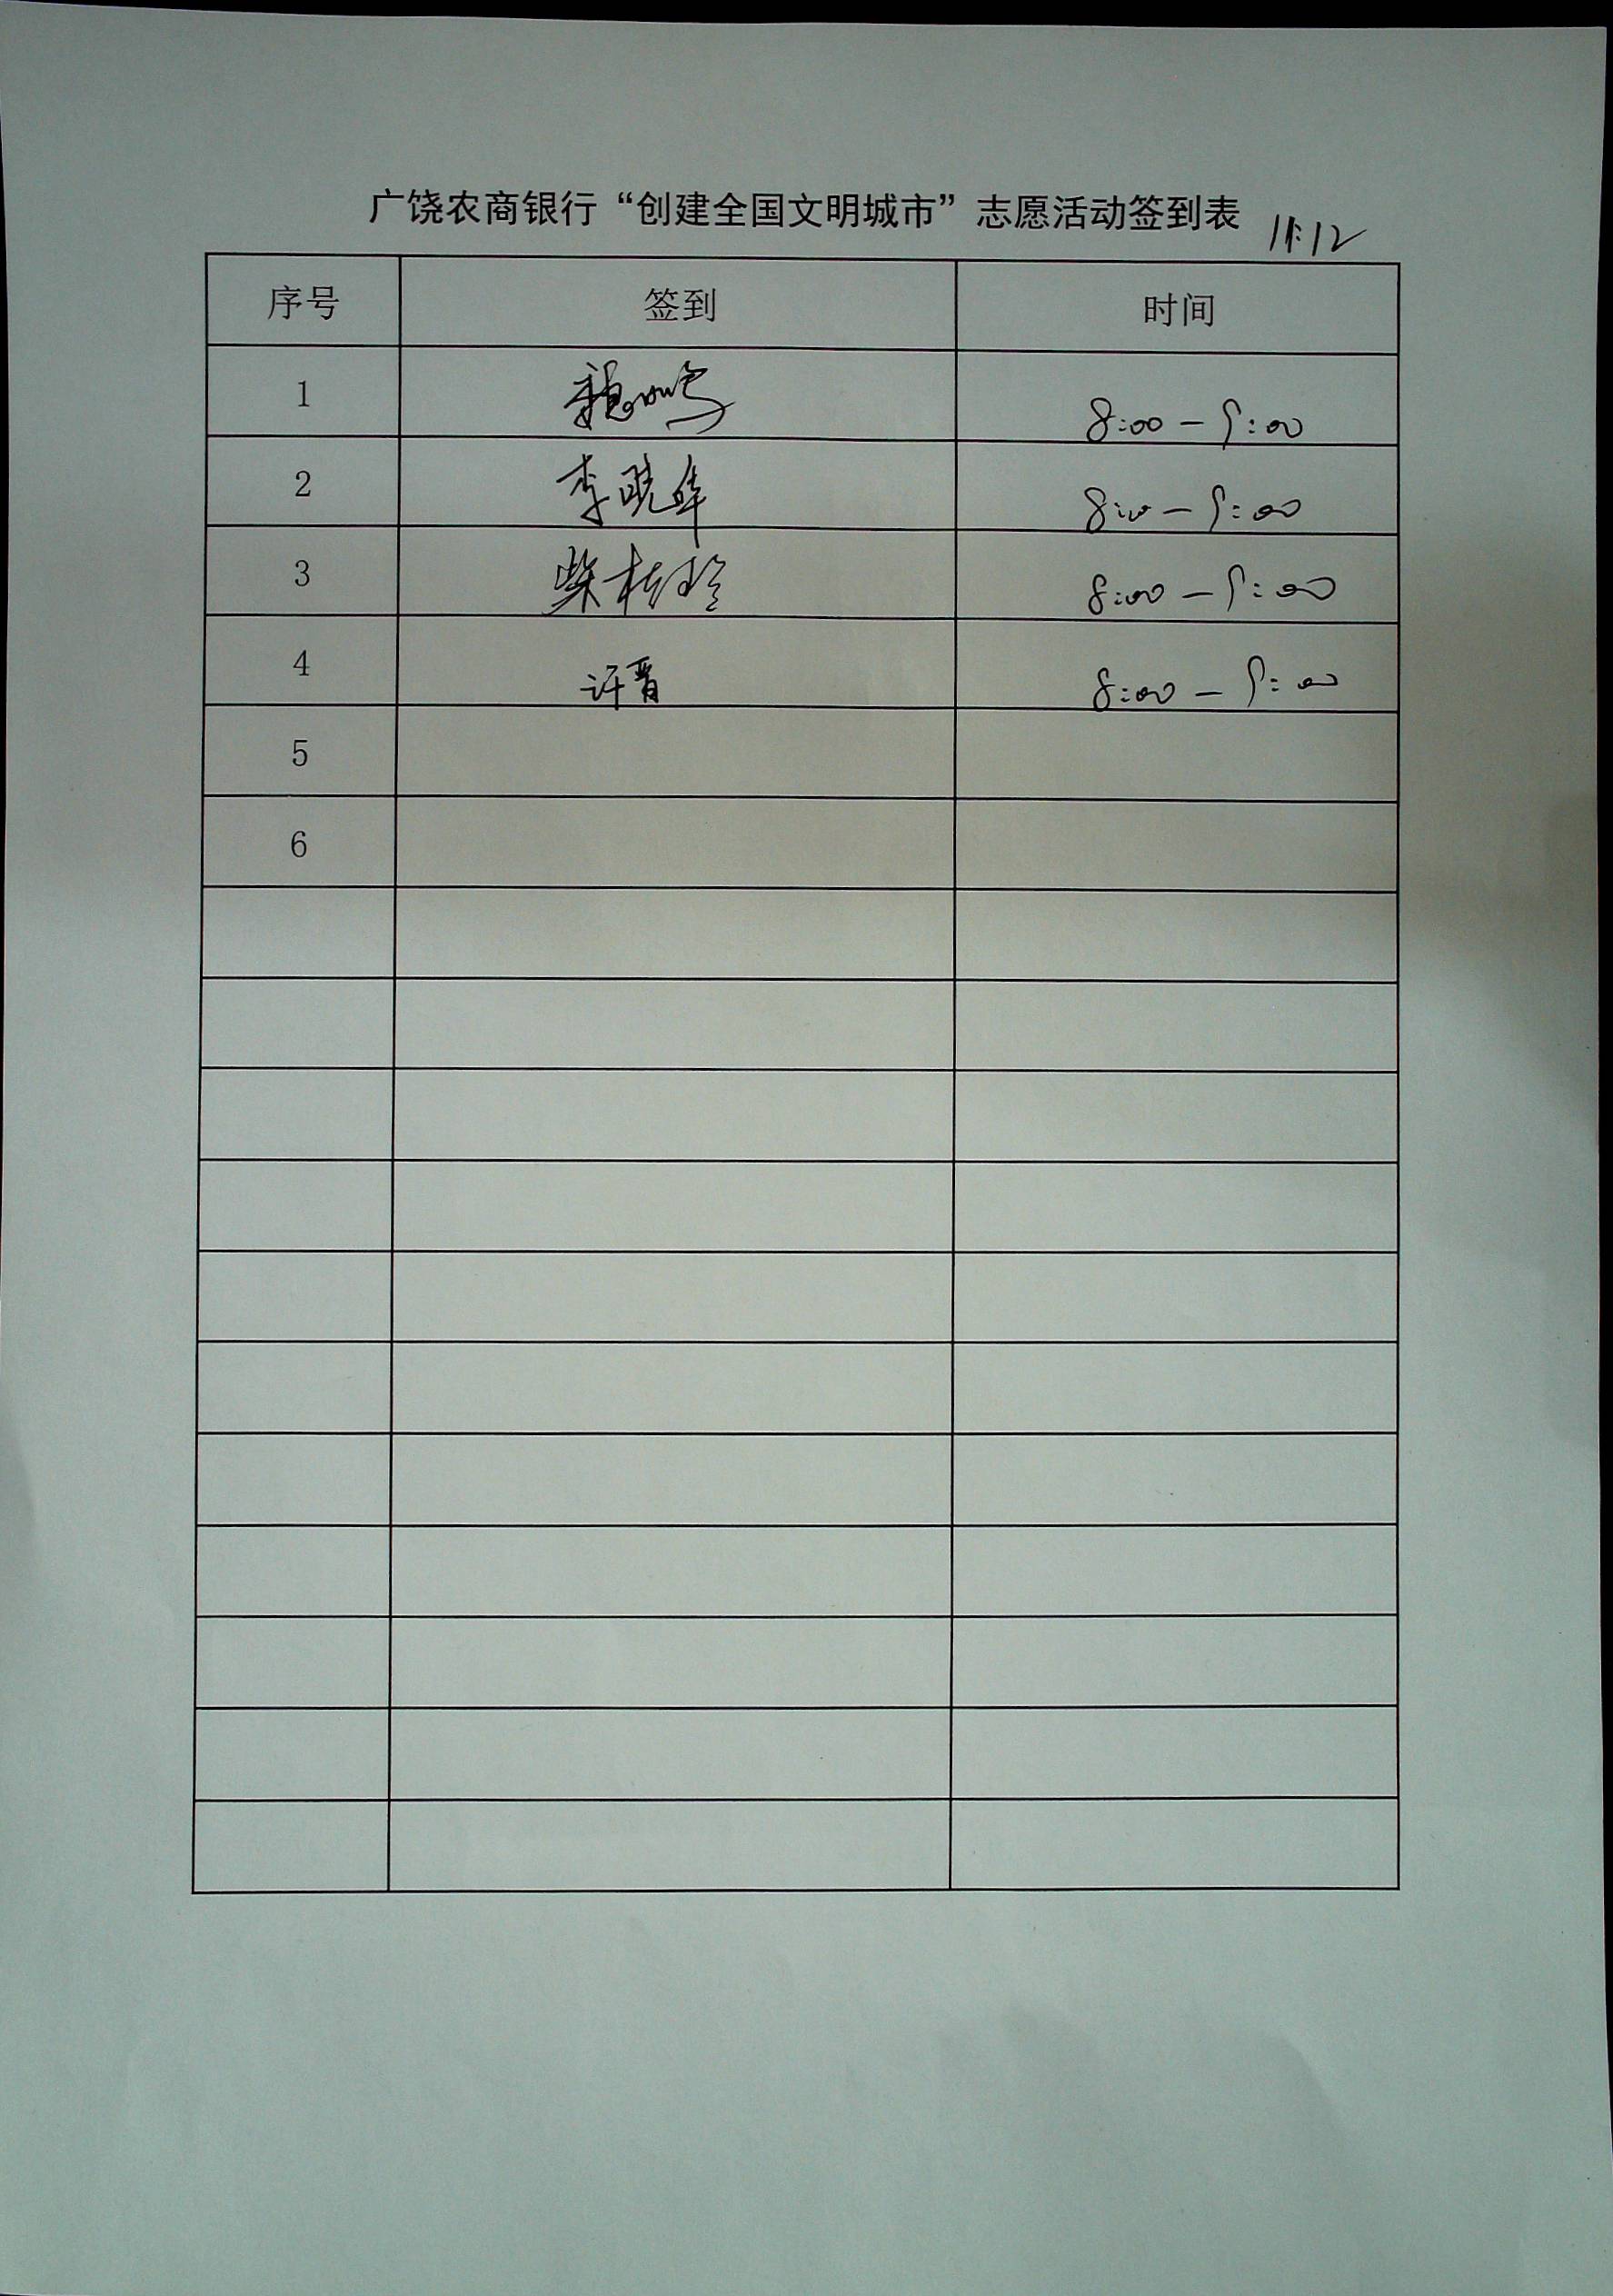 广饶农商银行“创建全国文明城市”志愿活动签到表 11.12
序号 签到 时间
1 8:00-9:00
2 李晓华 8:00-9:00
3 柴桂玲 8:00-9:00
4 许晋 8:00-9:00
5
6